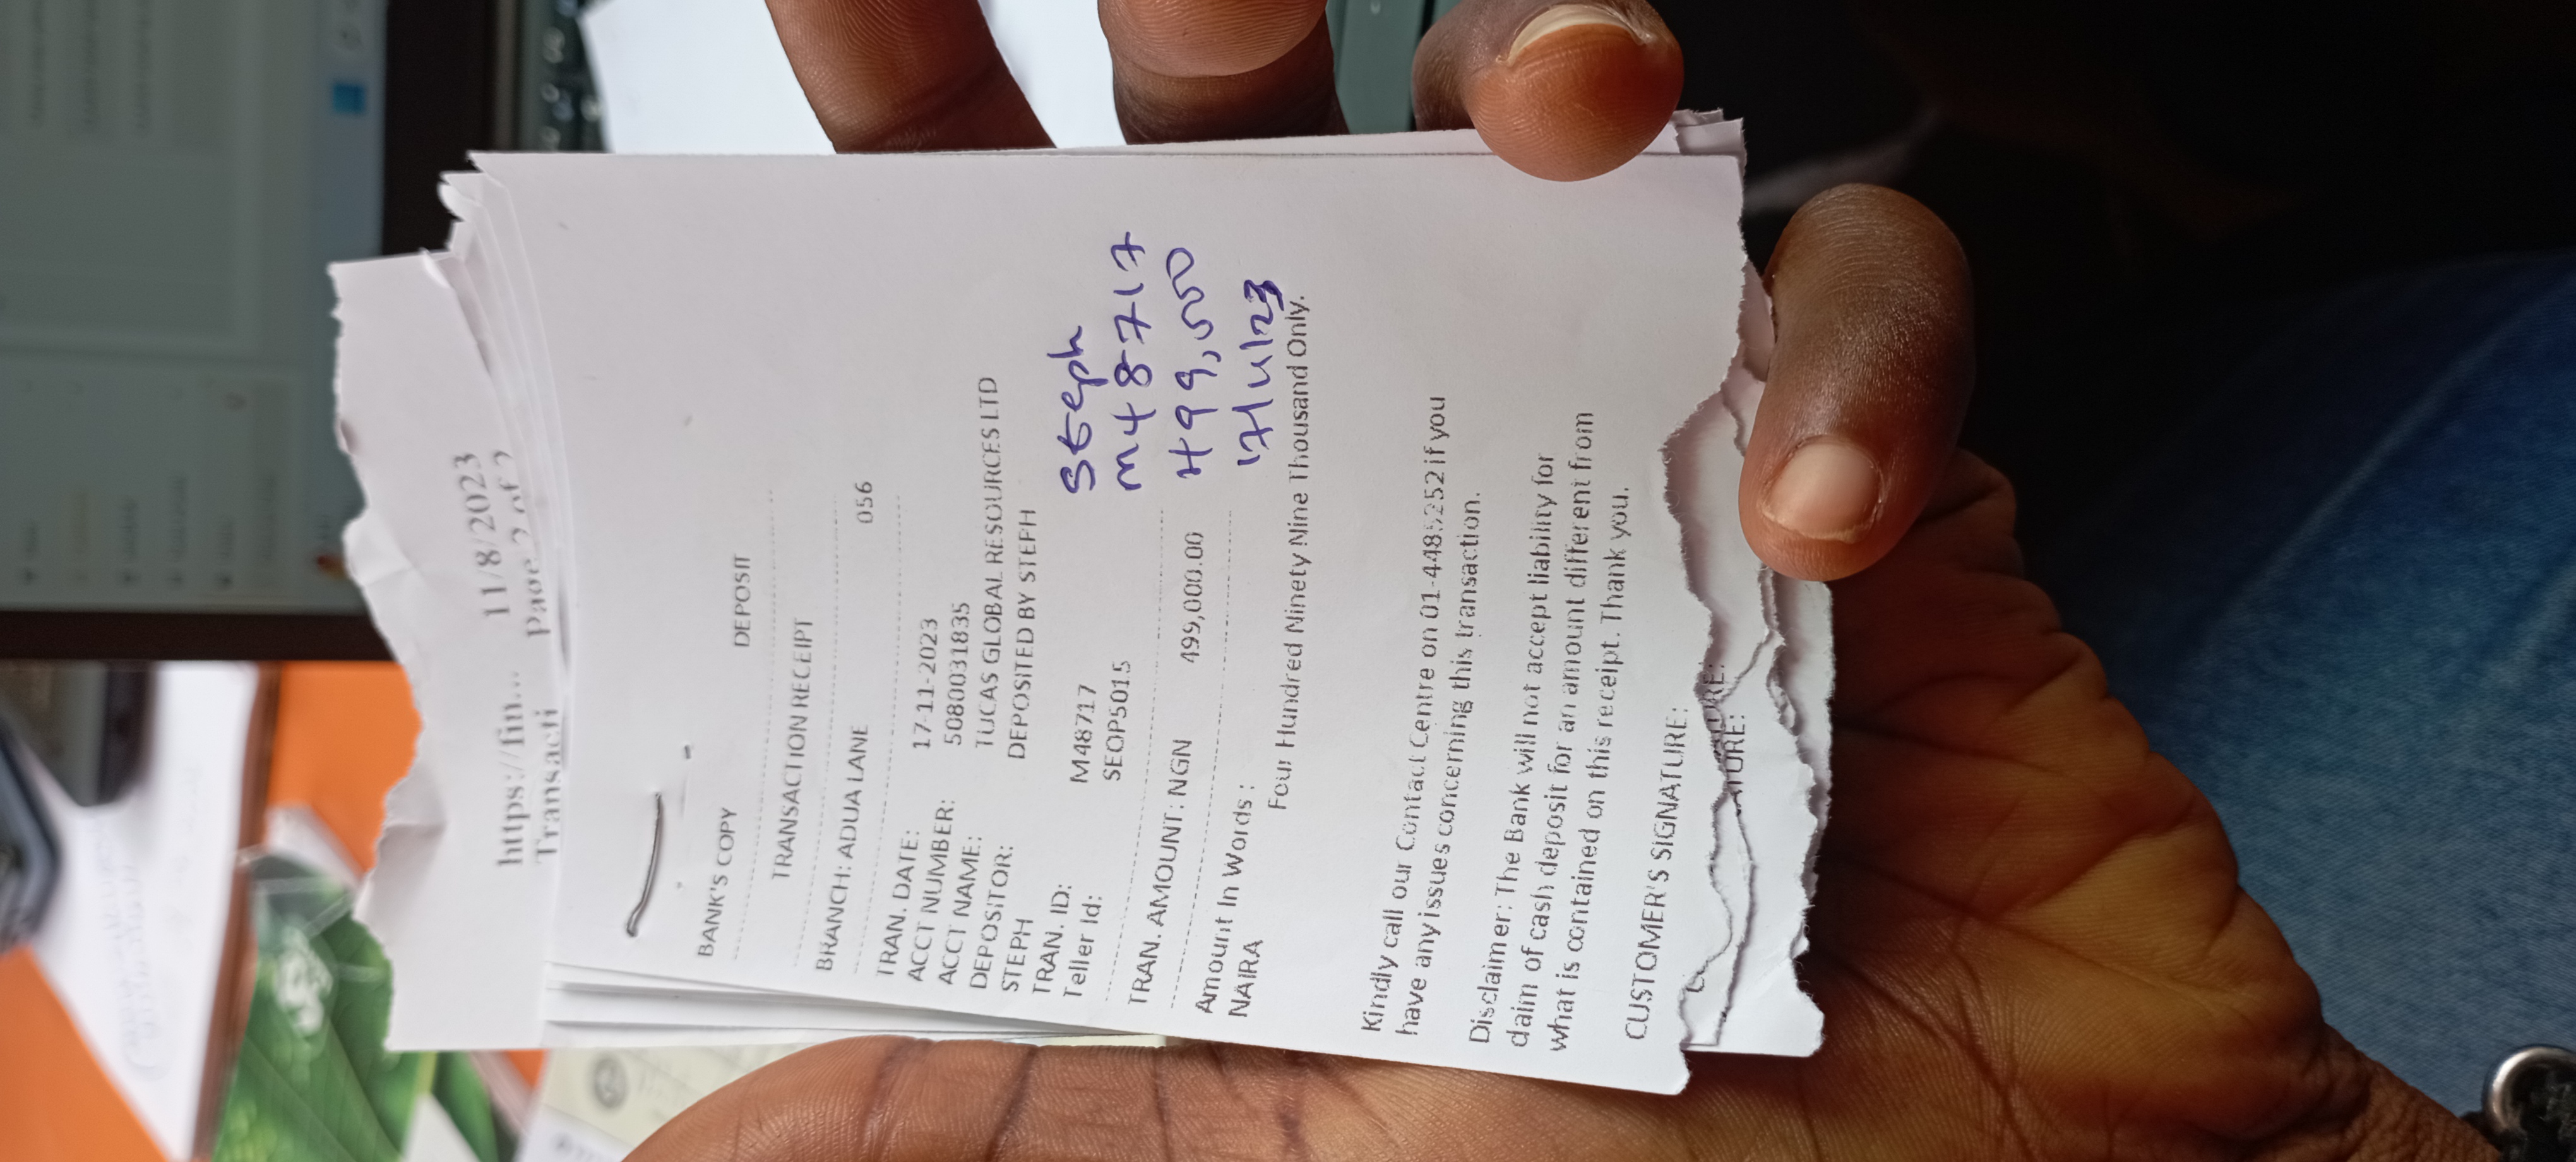 https://fin... 11/8/2023
Transacti Page 2 of 2
BANK'S COPY DEPOSIT
TRANSACTION RECEIPT
BRANCH: ADUA LANE 056
TRAN. DATE: 17-11-2023
ACCT NUMBER: 5080031835
ACCT NAME: TUCAS GLOBAL RESOURCES LTD
DEPOSITOR: DEPOSITED BY STEPH
STEPH
TRAN. ID: M48717
Teller Id: SEOP5015
Steph
M48717
499,000
17/11/23
TRAN. AMOUNT: NGN 499,000.00
Amount In Words :
NAIRA Four Hundred Ninety Nine Thousand Only.
Kindly call our Contact Centre on 01-4485252 if you
have any issues concerning this transaction.
Disclaimer: The Bank will not accept liability for
claim of cash deposit for an amount different from
what is contained on this receipt. Thank you.
CUSTOMER'S SIGNATURE:
TURE: